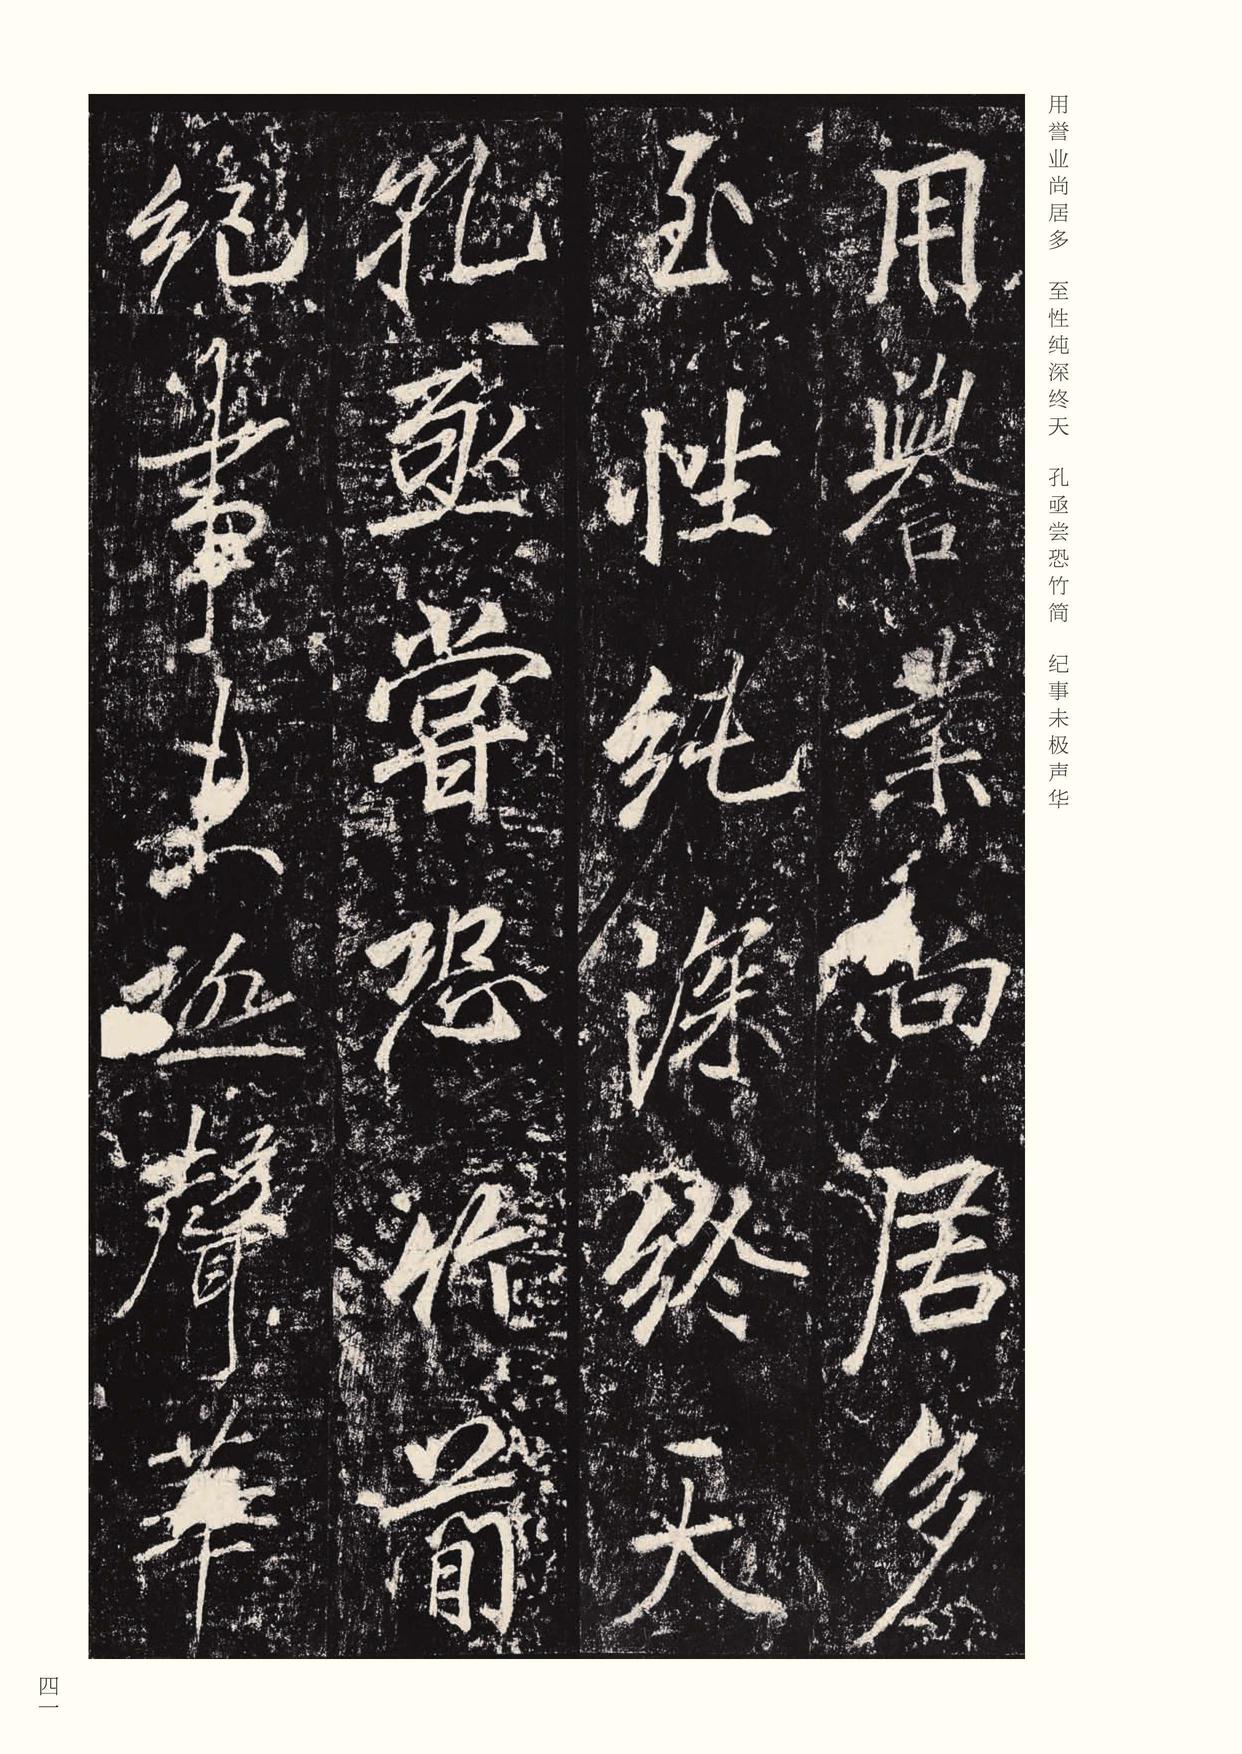 用誉业尚居多　至性纯深终天　孔亟尝恐竹简　纪事未极声华
用譽業尚居多
至性純深終天
孔亟嘗恐竹簡
紀事未極聲華
四一